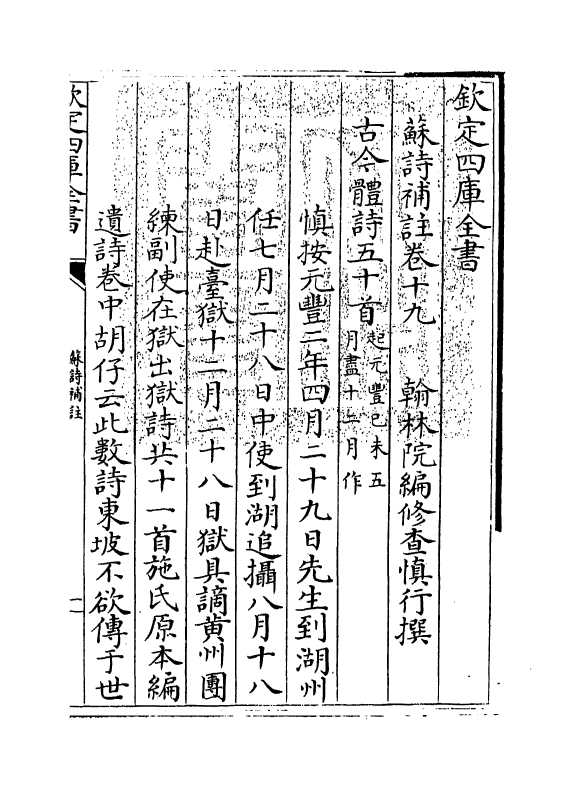 欽定四庫全書
蘇詩補註卷十九　　翰林院編修查慎行撰
古今體詩五十首起元豐己未五
月盡十二月作
慎按元豐二年四月二十九日先生到湖州
任七月二十八日中使到湖追攝八月十八
日赴臺獄十二月二十八日獄具謫黄州團
練副使在獄出獄詩共十一首施氏原本編
遺詩卷中胡仔云此數詩東坡不欲傳于世
欽定四庫全書
蘇詩補註